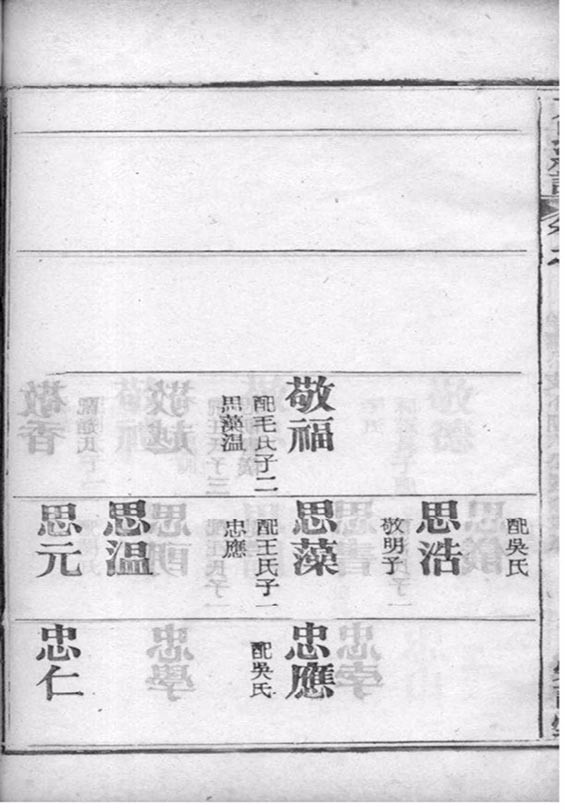 敬福
配毛氏子二
思藻溫
配吳氏
思浩
敬明子
思藻
配王氏子一
忠應
思溫
思元
忠應
配吳氏
忠仁